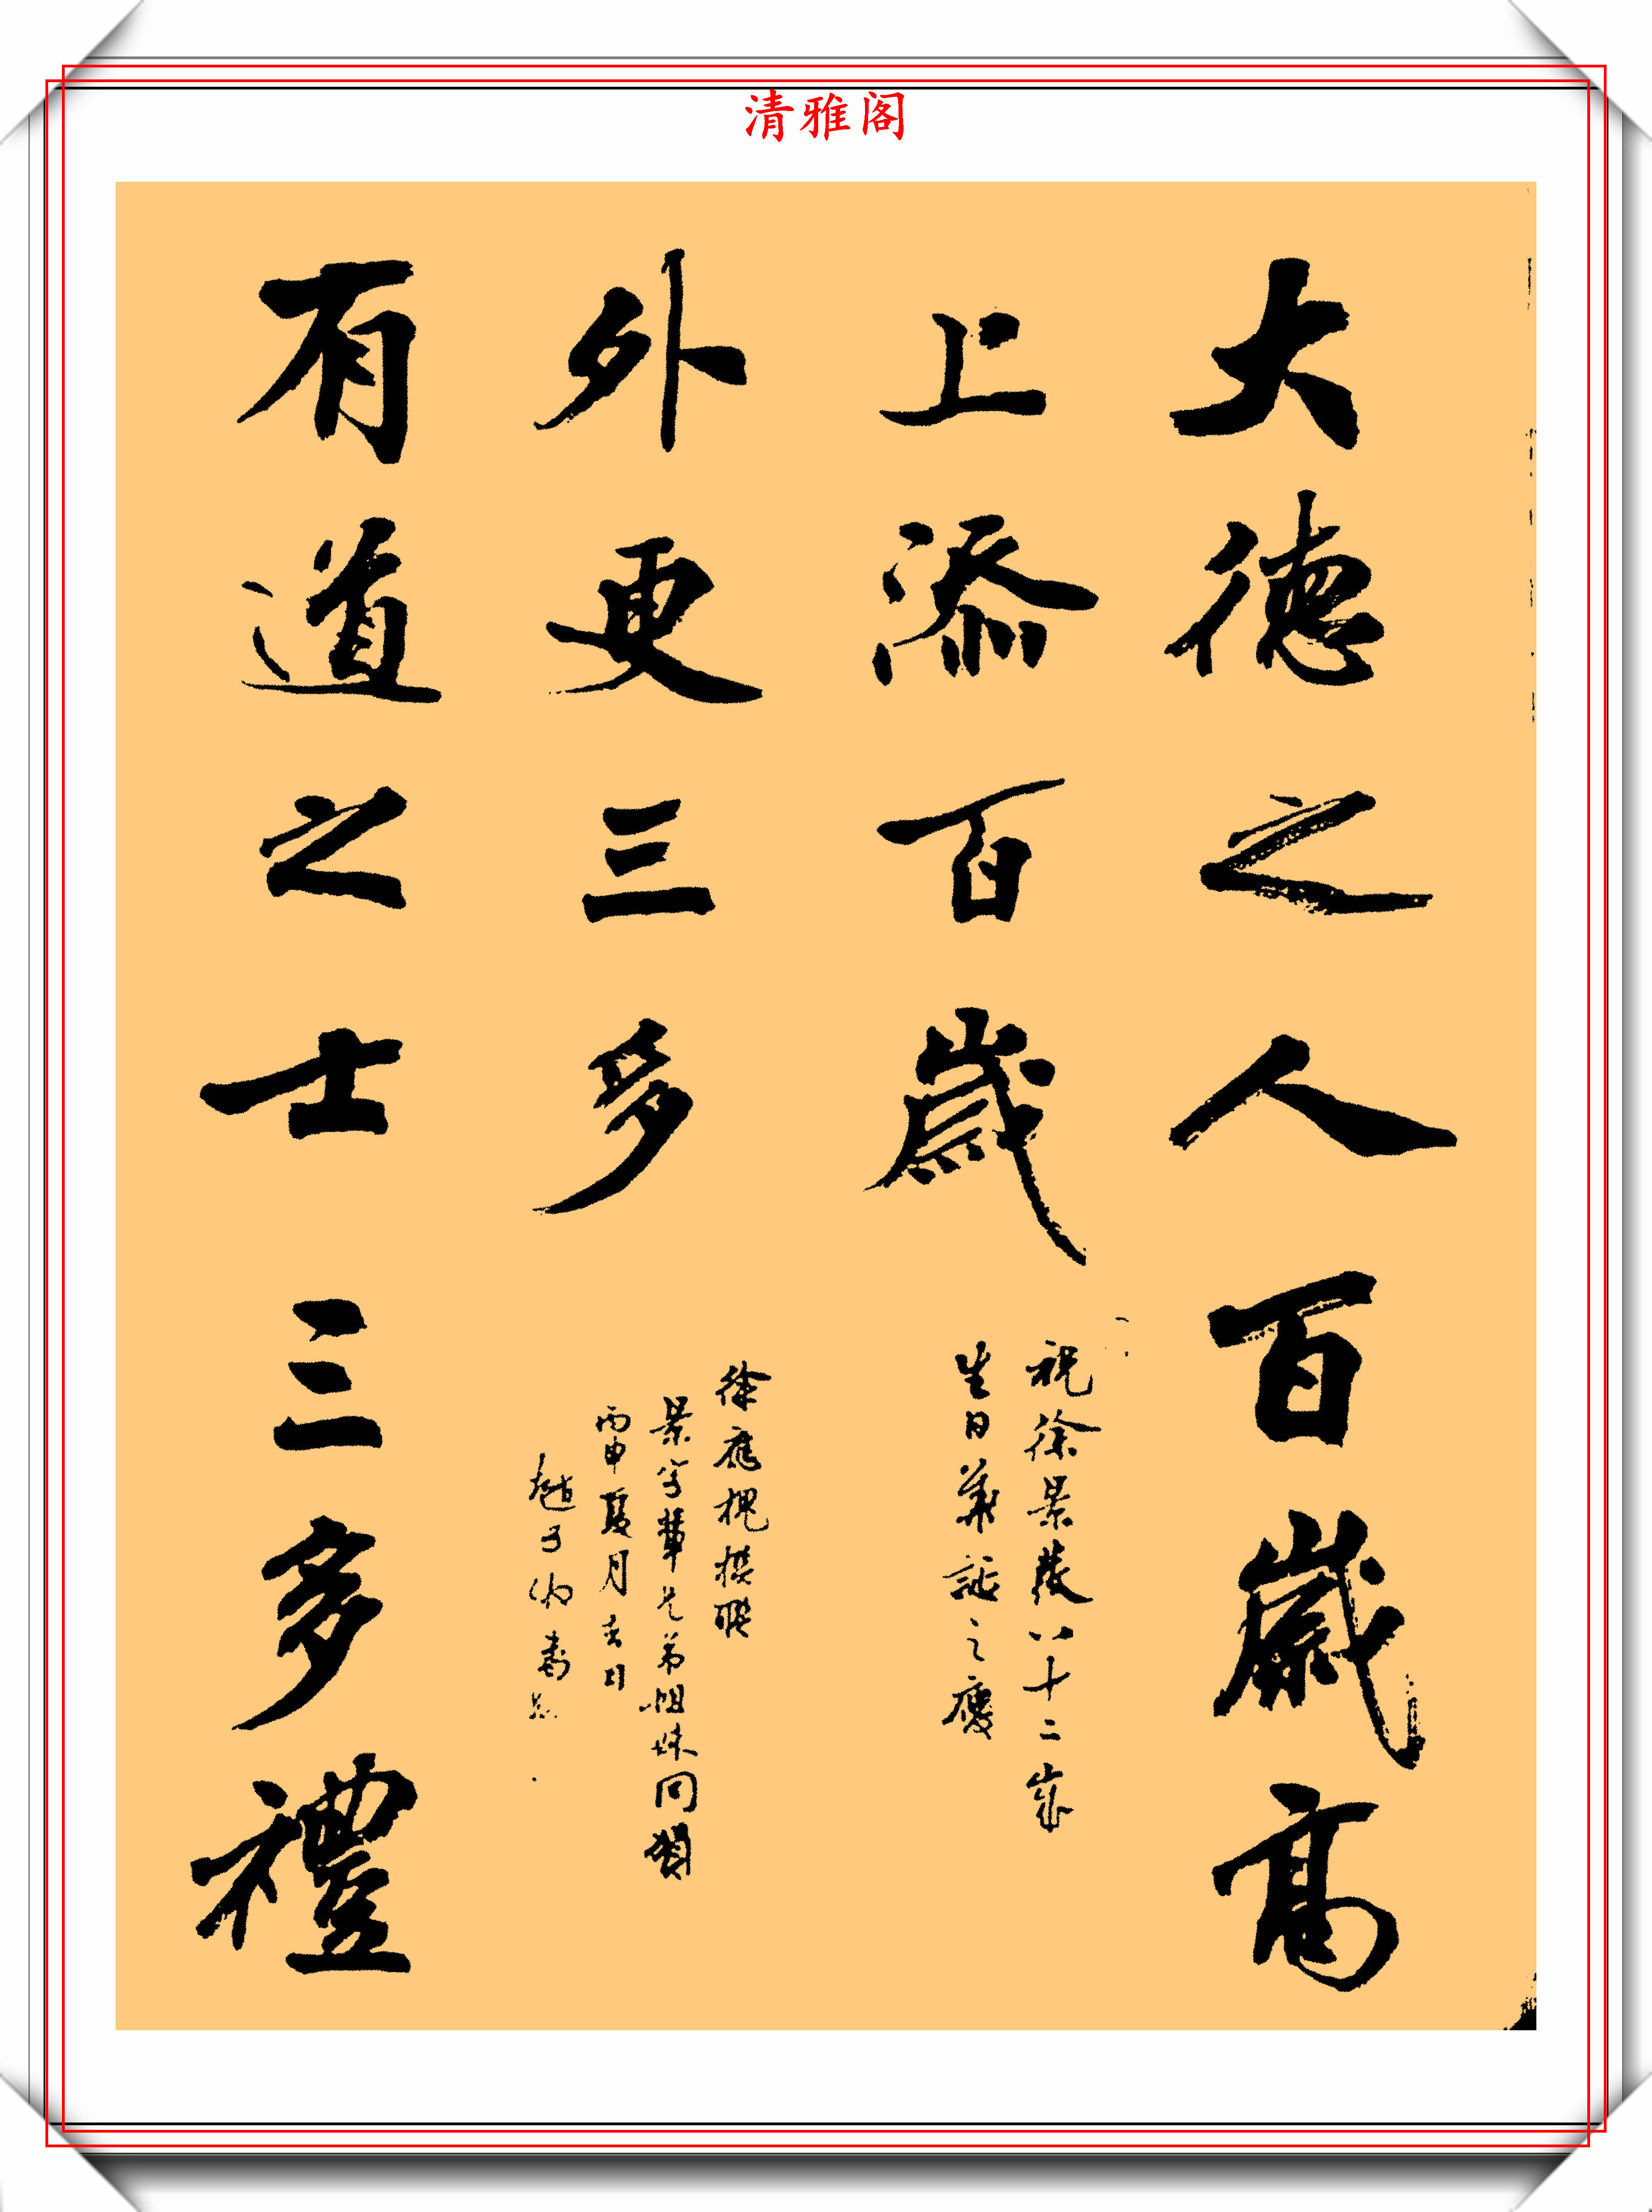 清雅阁
大德之人百歲高
上添百歲
祝徐景裴八十二歲
生日華誕之慶
外更三多
徐應槐撰聯
景字輩兄弟姐妹同賀
丙申夏月吉日
趙子
書
有道之士三多禮